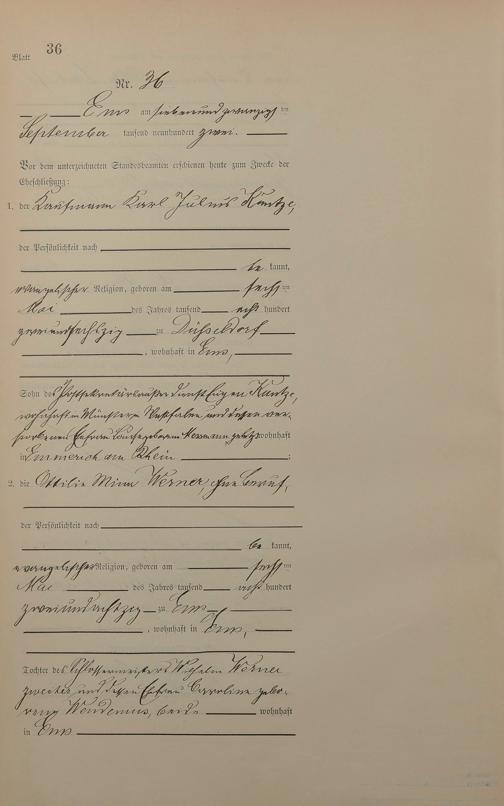 Blatt 36
Nr. 36
Ems am siebenundzwanzigsten
September tausend neunhundert zwei.
Vor dem unterzeichneten Standesbeamten erschienen heute zum Zwecke der
Eheschließung:
1. der Kaufmann Karl Julius Kuntze,
der Persönlichkeit nach
be kannt,
evangelischer Religion, geboren am sechsten
Mai des Jahres tausend acht hundert
zweiundsechszig zu Düsseldorf
, wohnhaft in Ems,
Sohn des Postsekretär außer Dienst Eugen Kuntze,
wohnhaft in Münster in Westfalen und dessen ver-
storbenen Ehefrau geborenen wohnhaft
in Emmerich am Rhein ;
2. die Ottilie Minna Werner, ohne Beruf,
der Persönlichkeit nach
be kannt,
evangelischer Religion, geboren am sechsten
Mai des Jahres tausend acht hundert
zweiundachtzig zu Ems
, wohnhaft in Ems,
Tochter des Schlossermeisters Wilhelm Werner
zweiter und dessen Ehefrau Caroline gebo-
rene beide wohnhaft
in Ems